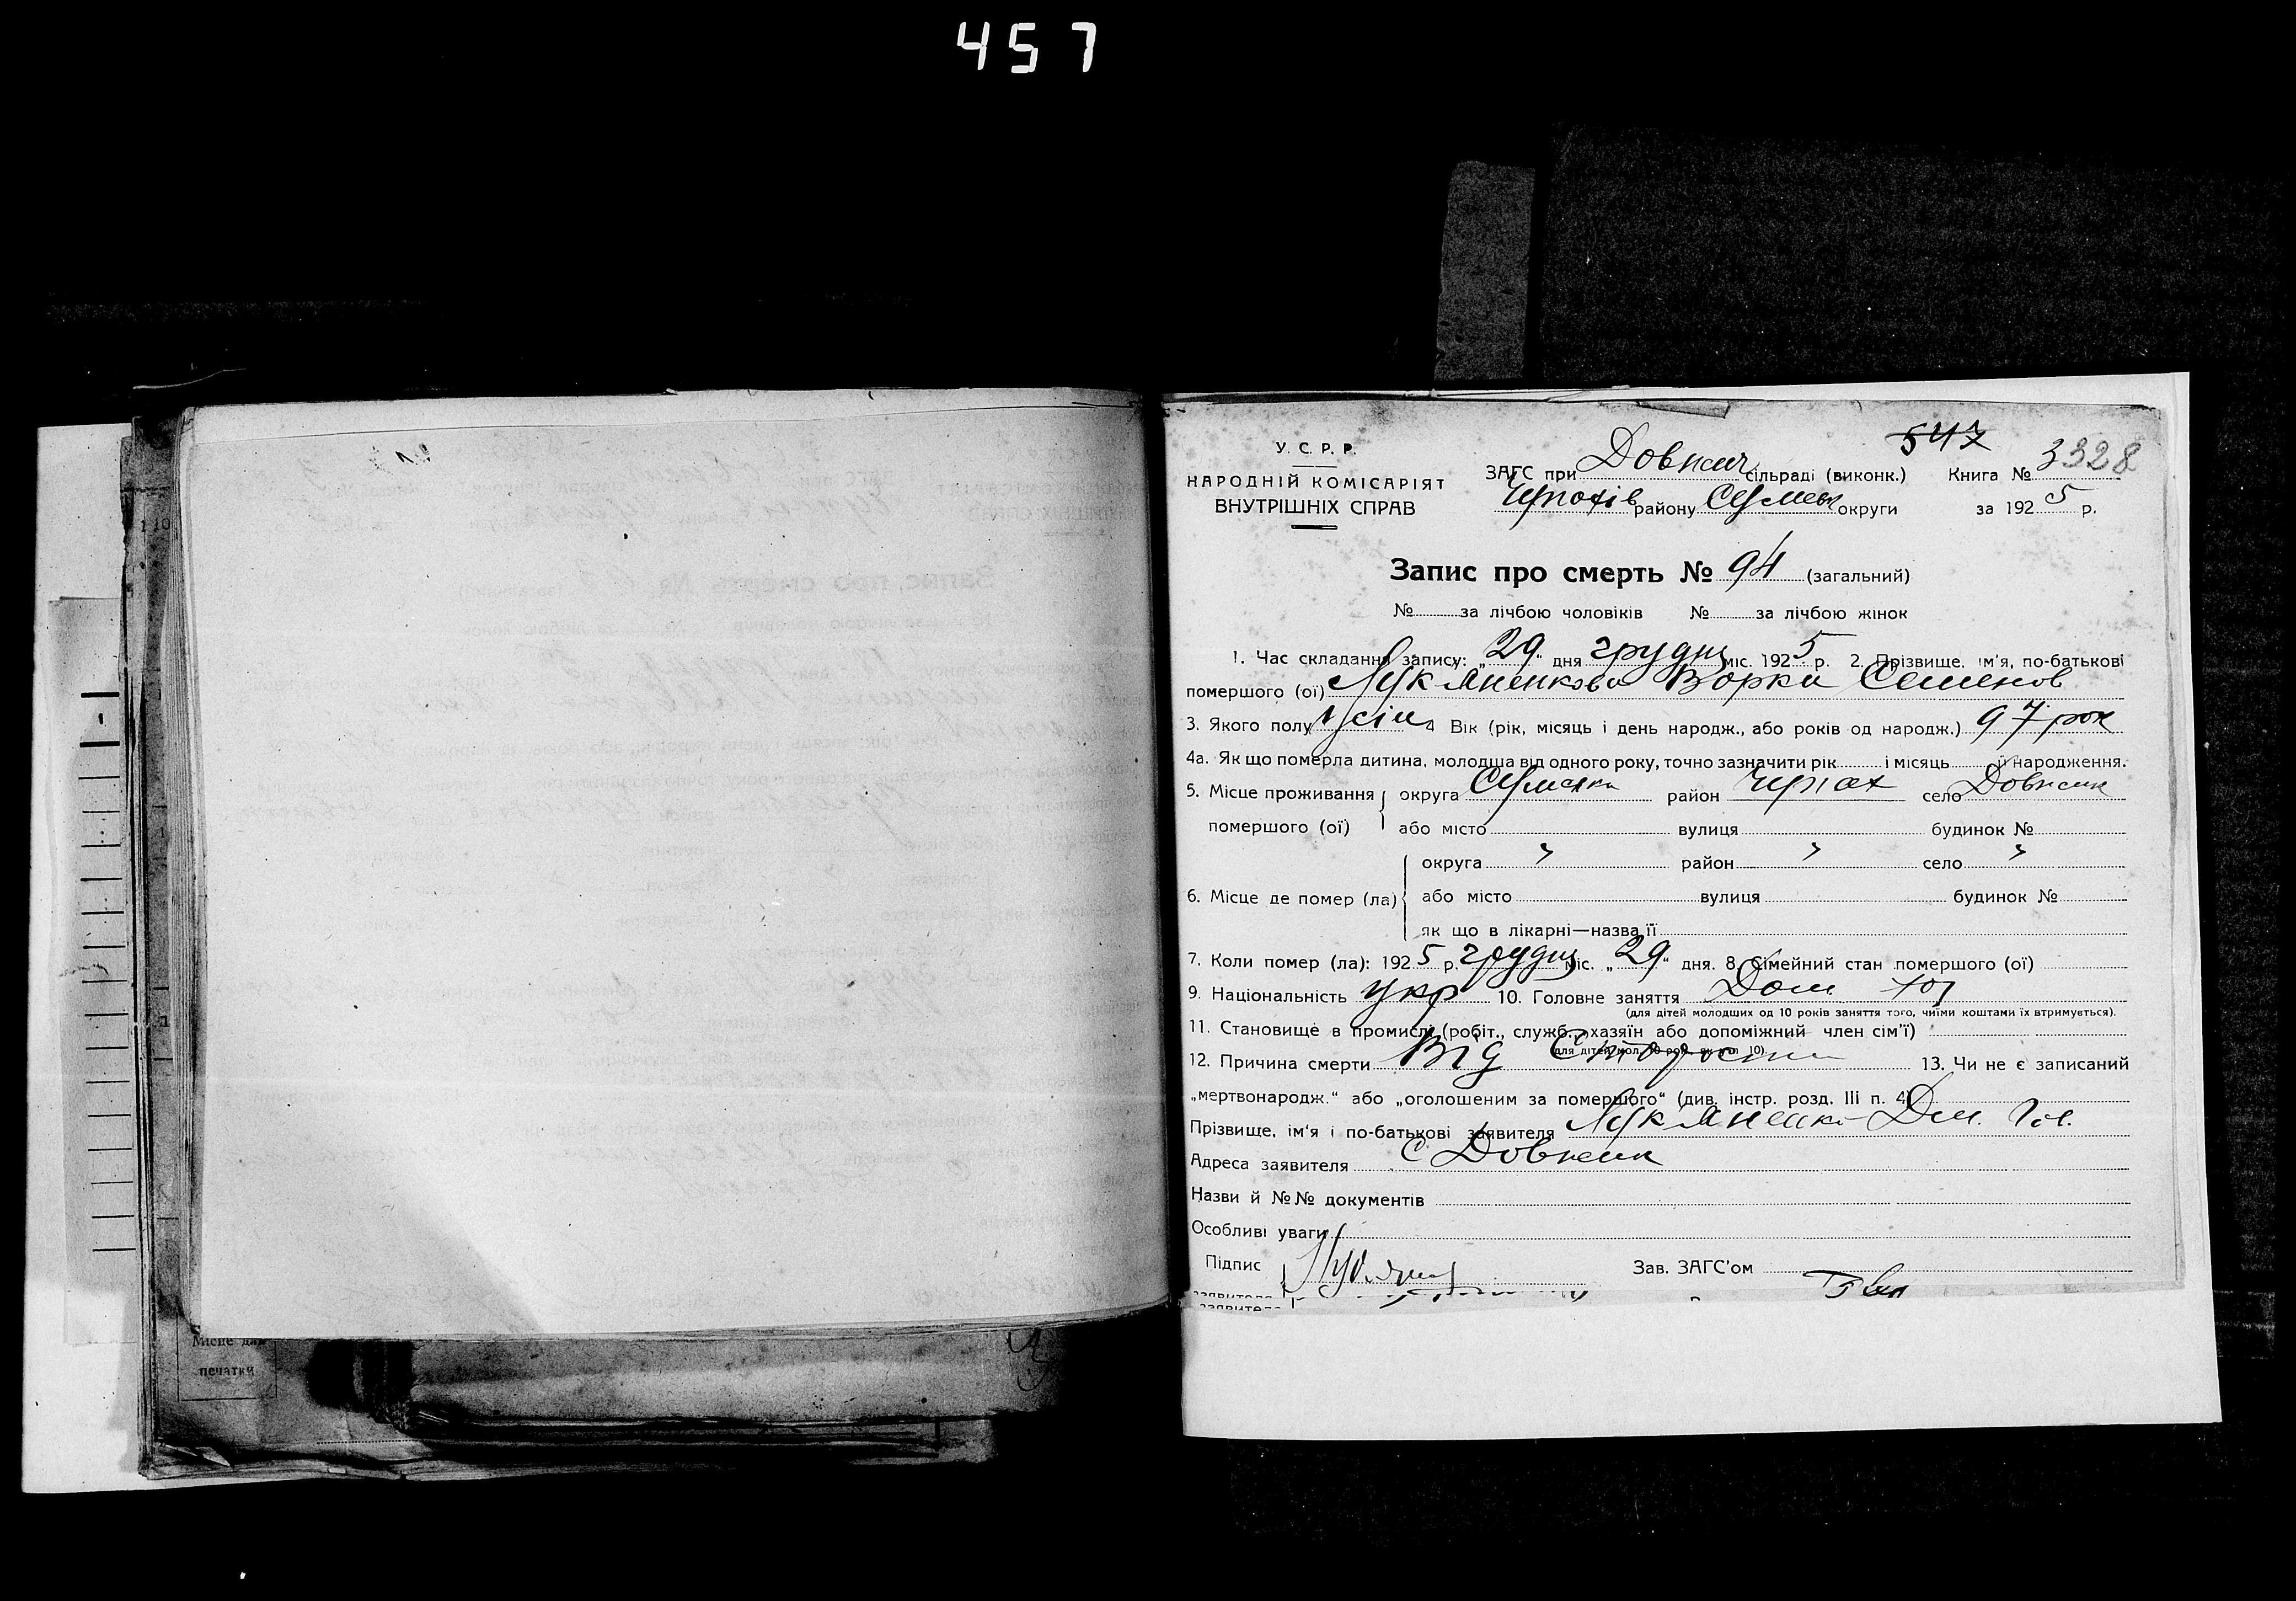 457
547
У. С. Р. Р.
НАРОДНІЙ КОМІСАРІЯТ
ВНУТРІШНІХ СПРАВ
ЗАГС при Довжич сільраді (виконк.) Книга № 3 328
району округи за 1925 р.
Запис про смерть № 94 (загальний)
№ за лічбою чоловіків № за лічбою жінок
1. Час складання запису: „29“ дня грудня міс. 1925 р. 2. Прізвище, ім'я, по-батькові
помершого (ої) Лук'яненкова Варка Семенов
3. Якого полу жін 4 Вік (рік, місяць і день народж., або років од народж.) 97 рок
4а. Як що померла дитина, молодша від одного року, точно зазначити рік і місяць її народження.
5. Місце проживання округа район село Довжик
помершого (ої) або місто вулиця будинок №
округа " район " село "
6. Місце де помер (ла) або місто вулиця будинок №
як що в лікарні—назва її
7. Коли помер (ла): 1925 р. грудня міс. „29“ дня. 8. Сімейний стан помершого (ої)
9. Національність укр 10. Головне заняття Дом
(для дітей молодших од 10 років заняття того, чиїми коштами їх втримується).
11. Становище в промислі (робіт., служб., хазяїн або допоміжний член сім'ї)
12. Причина смерти Від Старости 13. Чи не є записаний
„мертвонародж.“ або „оголошеним за помершого“ (див. інстр. розд. III п. 4)
Прізвище, ім'я і по-батькові заявителя Лук'яненко Дм.
Адреса заявителя с Довжик
Назви й №№ документів
Особливі уваги
Підпис Зав. ЗАГС'ом
заявителя
Місце для
печатки